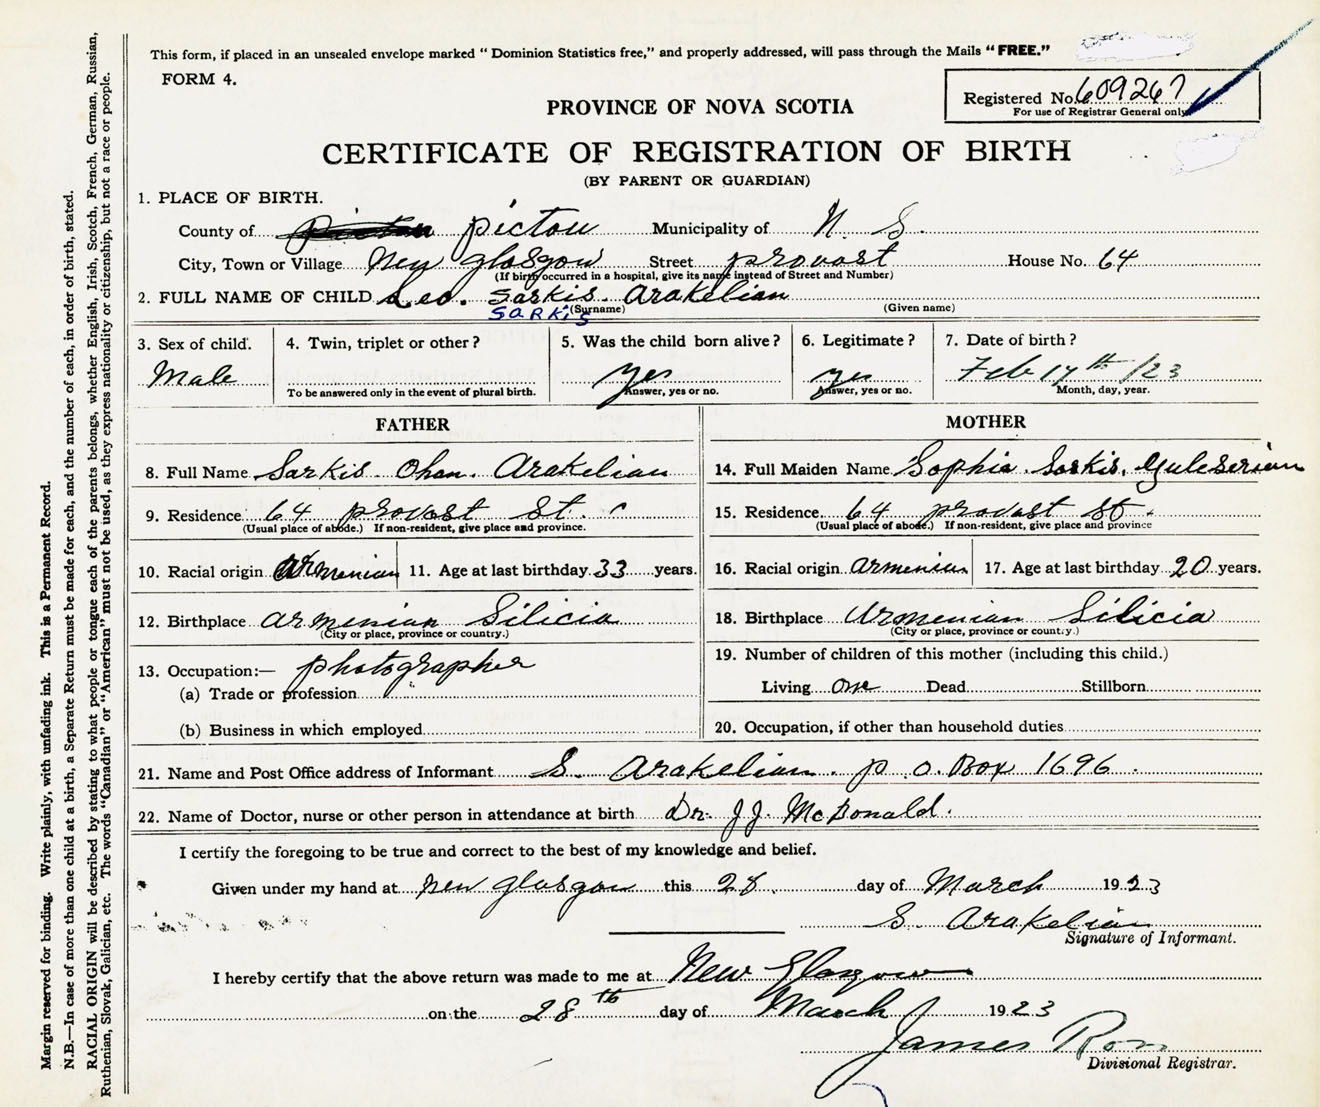 This form, if placed in an unsealed envelope marked “Dominion Statistics free,” and properly addressed, will pass through the Mails “FREE.”
FORM 4.
Registered No. 609267
For use of Registrar General only
PROVINCE OF NOVA SCOTIA
CERTIFICATE OF REGISTRATION OF BIRTH
(BY PARENT OR GUARDIAN)
1. PLACE OF BIRTH.
County of pictou Municipality of N. S.
City, Town or Village New glasgow Street provost House No. 64
(If birth occurred in a hospital, give its name instead of Street and Number)
2. FULL NAME OF CHILD Leo. Sarkis. Arakelian
SARKIS (Surname) (Given name)
3. Sex of child. 4. Twin, triplet or other? 5. Was the child born alive? 6. Legitimate? 7. Date of birth?
Male yes yes Feb 17th /23
To be answered only in the event of plural birth. Answer, yes or no. Answer, yes or no. Month, day, year.
FATHER MOTHER
8. Full Name Sarkis Ohan. Arakelian 14. Full Maiden Name Sophia. Sarkis. Guleserian
9. Residence 64 provost St. 15. Residence. 64 provast St.
(Usual place of abode.) If non-resident, give place and province. (Usual place of abode.) If non-resident, give place and province
10. Racial origin Armenian 11. Age at last birthday 33 years. 16. Racial origin armenian 17. Age at last birthday 20 years.
12. Birthplace armenian Silicia 18. Birthplace Armenian Silicia
(City or place, province or country.) (City or place, province or country.)
13. Occupation:— photographer 19. Number of children of this mother (including this child.)
(a) Trade or profession Living one Dead Stillborn
(b) Business in which employed 20. Occupation, if other than household duties
21. Name and Post Office address of Informant S. Arakelian. p. o. Box 1696.
22. Name of Doctor, nurse or other person in attendance at birth Dr. J.J. McDonald.
I certify the foregoing to be true and correct to the best of my knowledge and belief.
Given under my hand at new glasgow this 28. day of March 1923
S. Arakelian
Signature of Informant.
I hereby certify that the above return was made to me at New Glasgow
on the 28th day of March 1923
James
Divisional Registrar.
Margin reserved for binding. Write plainly, with unfading ink. This is a Permanent Record.
N.B.—In case of more than one child at a birth, a Separate Return must be made for each, and the number of each, in order of birth, stated.
RACIAL ORIGIN will be described by stating to what people or tongue each of the parents belongs, whether English, Irish, Scotch, French, German, Russian,
Ruthenian, Slovak, Galician, etc. The words “Canadian” or “American” must not be used, as they express nationality or citizenship, but not a race or people.